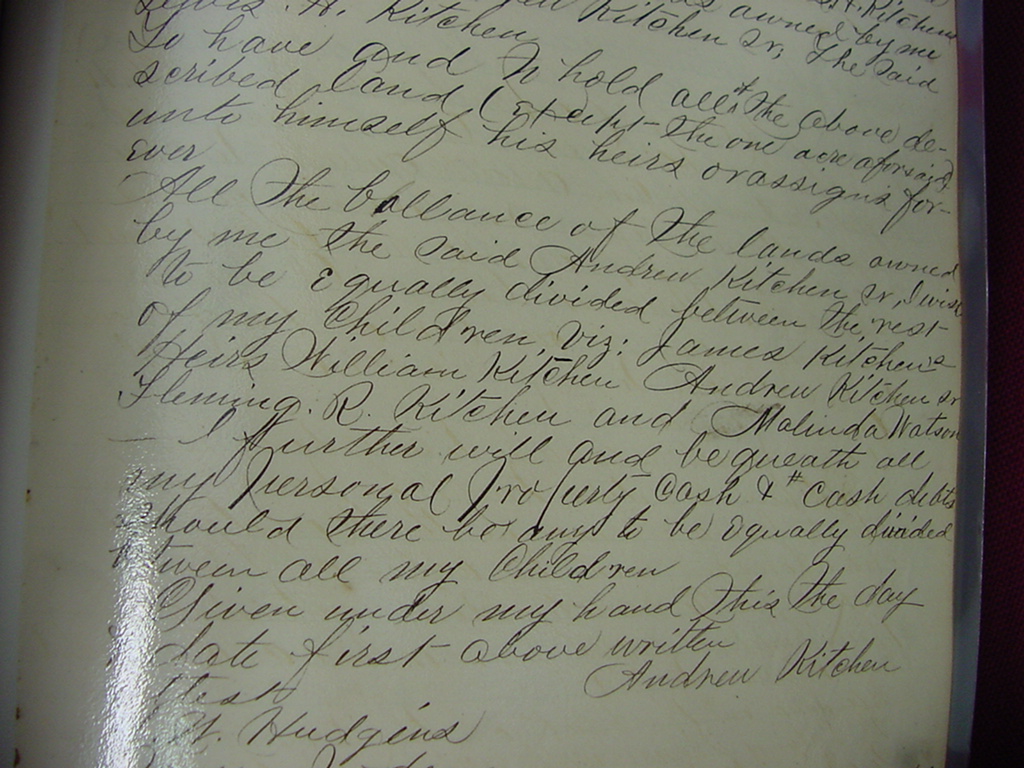 owned by me
Lewis. H. Kitchen Kitchen Sr, The said
To have and to hold all the above de-
scribed land (Except the one acre aforsaid)
unto himself his heirs or assigns for-
ever
All the ballance of the lands owned
by me the said Andrew Kitchen Sr, I wish
to be Equally divided between the rest
of my Children viz: James Kitchens
Heirs William Kitchen Andrew Kitchen Jr
Fleming. R. Kitchen and Malinda Watson
— I further will and bequeath all
my personal property Cash & cash debts
should there be any to be Equally divided
between all my Children
Given under my hand this the day
& date first above written
Andrew Kitchen
Test
Hudgins